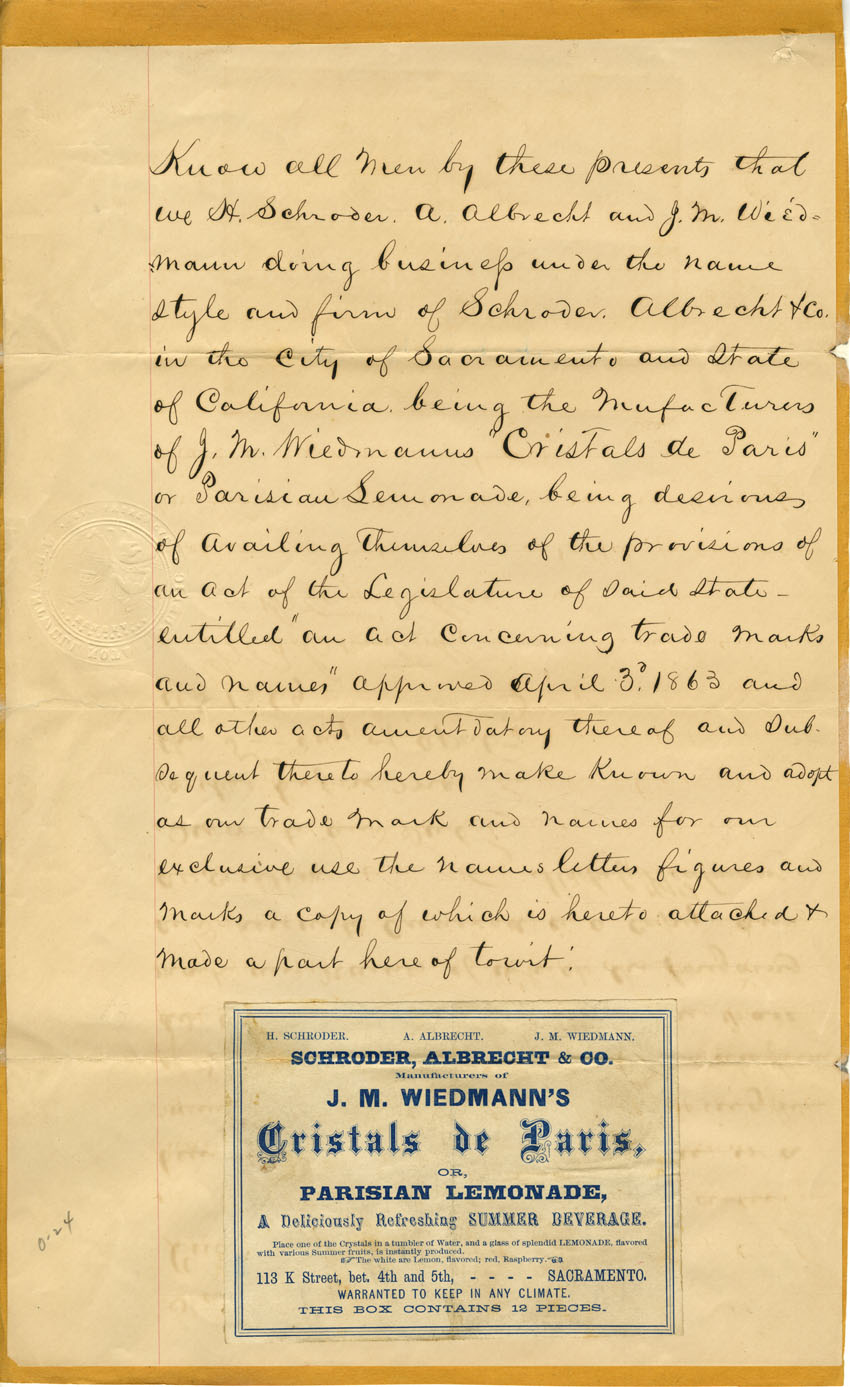 Know all Men by these presents that
we H. Schroder. A. Albrecht and J. M. Wied=
mann doing business under the name
style and firm of Schroder. Albrecht & Co.
in the City of Sacramento and State
of California. being the Mufacturers
of J. M. Wiedmanns "Cristals de Paris"
or Parisian Lemonade, being desirous
of availing themselves of the provisions of
an Act of the Legislature of said State -
entitled "an act Concerning trade marks
and names" approved April 3d. 1863 and
all other acts amentdatory thereof and sub-
sequent thereto hereby make known and adopt
as our trade mark and names for our
exclusive use the names letters figures and
marks a copy of which is hereto attached &
made a part here of towit:
H. SCHRODER. A. ALBRECHT. J. M. WIEDMANN.
SCHRODER, ALBRECHT & CO.
Manufacturers of
J. M. WIEDMANN'S
Cristals de Paris,
OR,
PARISIAN LEMONADE,
A Deliciously Refreshing SUMMER BEVERAGE.
Place one of the Crystals in a tumbler of Water, and a glass of splendid LEMONADE, flavored
with various Summer fruits, is instantly produced.
The white are Lemon, flavored; red, Raspberry.
113 K Street, bet. 4th and 5th, - - - - SACRAMENTO.
WARRANTED TO KEEP IN ANY CLIMATE.
THIS BOX CONTAINS 12 PIECES.